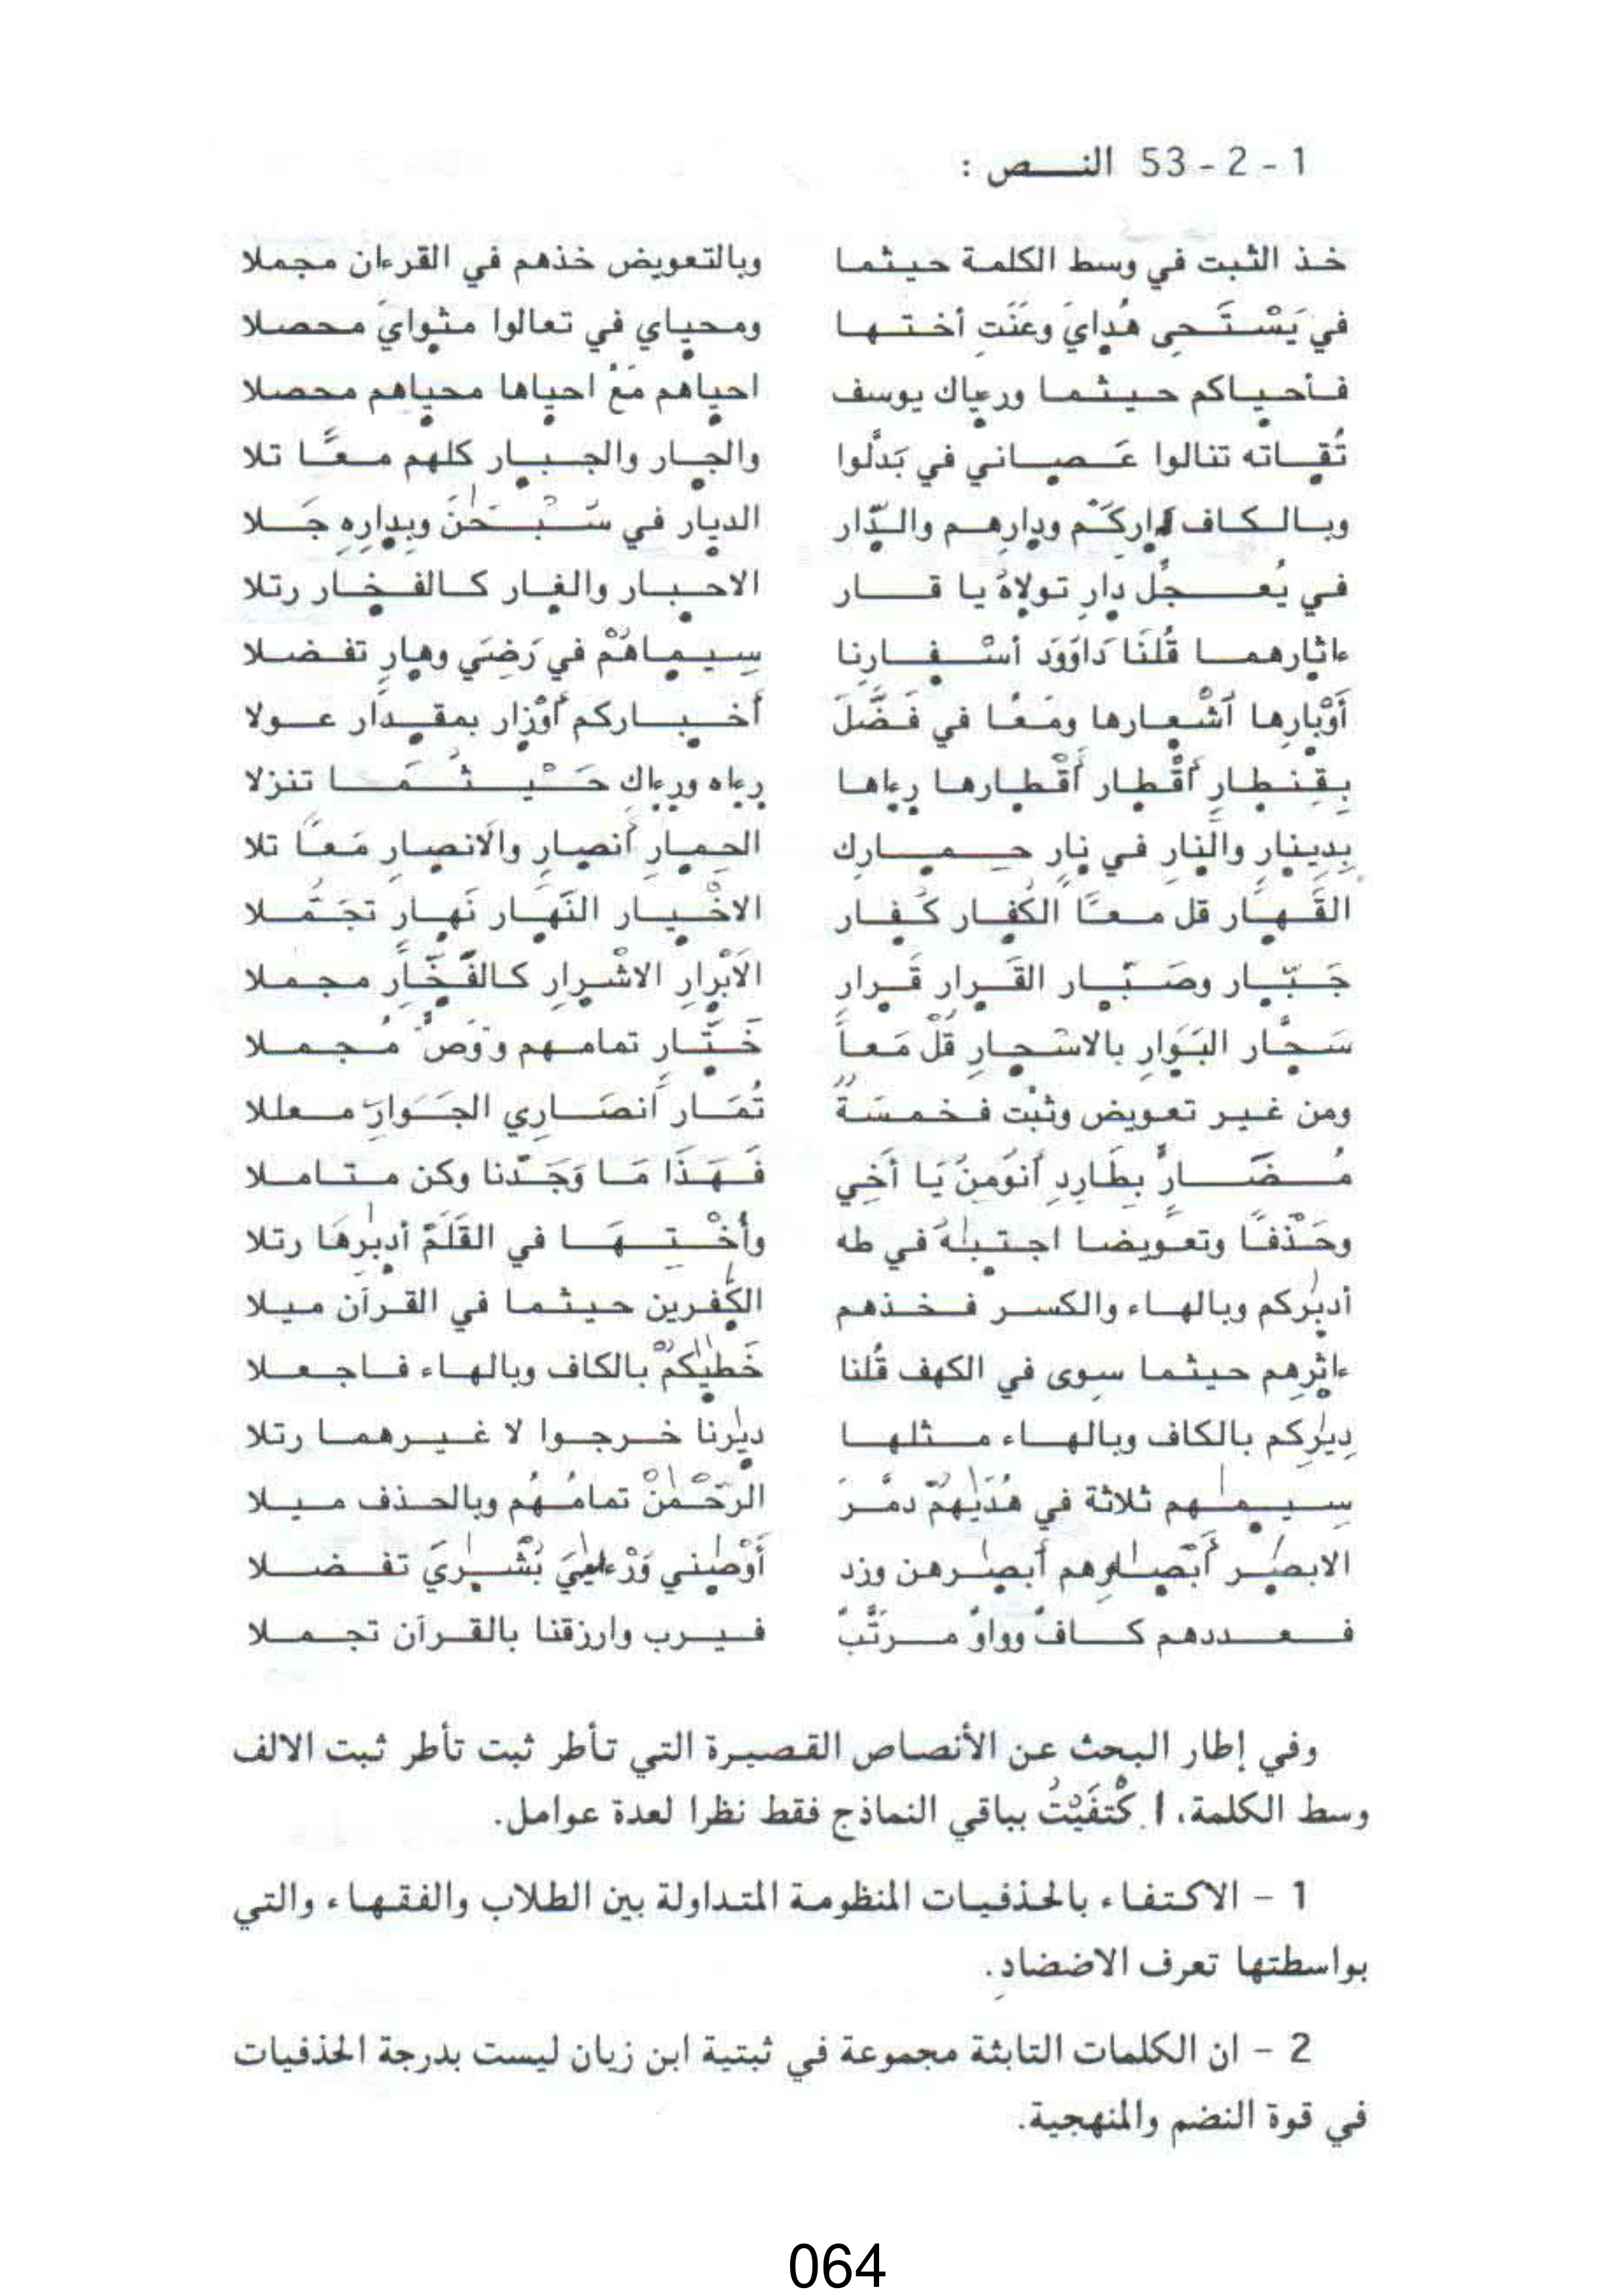 1 - 2 - 53 النــص :
خذ الثبت في وسط الكلمة حيثما وبالتعويض خذهم في القرءان مجملا
في يَسْتَحيِ هُدايَ وعَنَتِ أختها ومحياي في تعالوا مثوايَ محصلا
فأحياكم حيثما ورءياك يوسف احياهم مَعْ احياها محياهم محصلا
تُقاته تنالوا عَصاني في بَدَّلوا والجار والجبار كلهم معًا تلا
وبالكاف داركُم ودارِهم والدّار الديار في سُبْحَٰنَ وبِدارِهِ جَلا
في يُعجِّل دارِ تولاهُ يا قار الاحبار والغار كالفخار رتلا
ءاثارهما قُلنَا دَاوُود أسْفارِنا سِيماهُمْ في رَضِيَ وهارٍ تفضلا
أَوْبارِها أَشْعارها ومَعًا في فَضَّلَ أخباركم أَوْزار بمقدار عولا
بِقِنطارٍ أقْطار أقْطارها رءاها رءاه ورءاك حَيْثُمَا تنزلا
بِدِينارٍ والنارِ في نارِ حمارك الحِمارِ أنصارِ والانصارِ مَعًا تلا
القَهار قل معًا الكُفار كُفار الاخْيار النَّهار نَهارٍ تجَمَّلا
جَبّار وصَبّار القَرار قَرارٍ الَابْرارِ الاشْرارِ كالفَخّارِ مجملا
سَحّار البَوَارِ بالاسْحارِ قُلْ مَعاً خَتّارِ تمامهم مُجملا
ومن غير تعويض وثبْت فخمسَةٌ تُمَار أَنصَارِي الجَوَارِ معللا
مُضَارٍّ بِطَارِدِ أَنُومِنُ يَا أَخِي فَهَذَا مَا وَجَدْنا وكن متاملا
وحَذْفًا وتعويضا اجتبٰهُ في طه وأُخْتِهَا في القَلَمْ أدبٰرِهَا رتلا
أدبٰركم وبالهاء والكسر فخذهم الكٰفرين حيثما في القرآن ميلا
ءاثٰرِهم حيثما سوى في الكهف قُلنا خَطٰيٰكُمْ بالكاف وبالهاء فاجعلا
دِيٰرِكم بالكاف وبالهاء مثلها ديٰرنا خرجوا لا غيرهما رتلا
سِيمٰهم ثلاثة في هُدَيٰهُمْ دمَّرَ الرَحْمٰنْ تمامُهُم وبالحذف ميلا
الابصٰر أَبْصٰرهم أَبصٰرهن وزد أَوْصٰني بُشْرٰيَ تفضلا
فعددهم كافٌ وواوٌ مرتَّبٌ فيرب وارزقنا بالقرآن تجملا
وفي إطار البحث عن الأنصاص القصيرة التي تأطر ثبت تأطر ثبت الالف
وسط الكلمة، ا كْتفَيْتُ بباقي النماذج فقط نظرا لعدة عوامل.
1 - الاكتفاء بالحذفيات المنظومة المتداولة بين الطلاب والفقهاء والتي
بواسطتها تعرف الاضضادِ.
2 - ان الكلمات التابثة مجموعة في ثبتية ابن زيان ليست بدرجة الحذفيات
في قوة النضم والمنهجية.
064